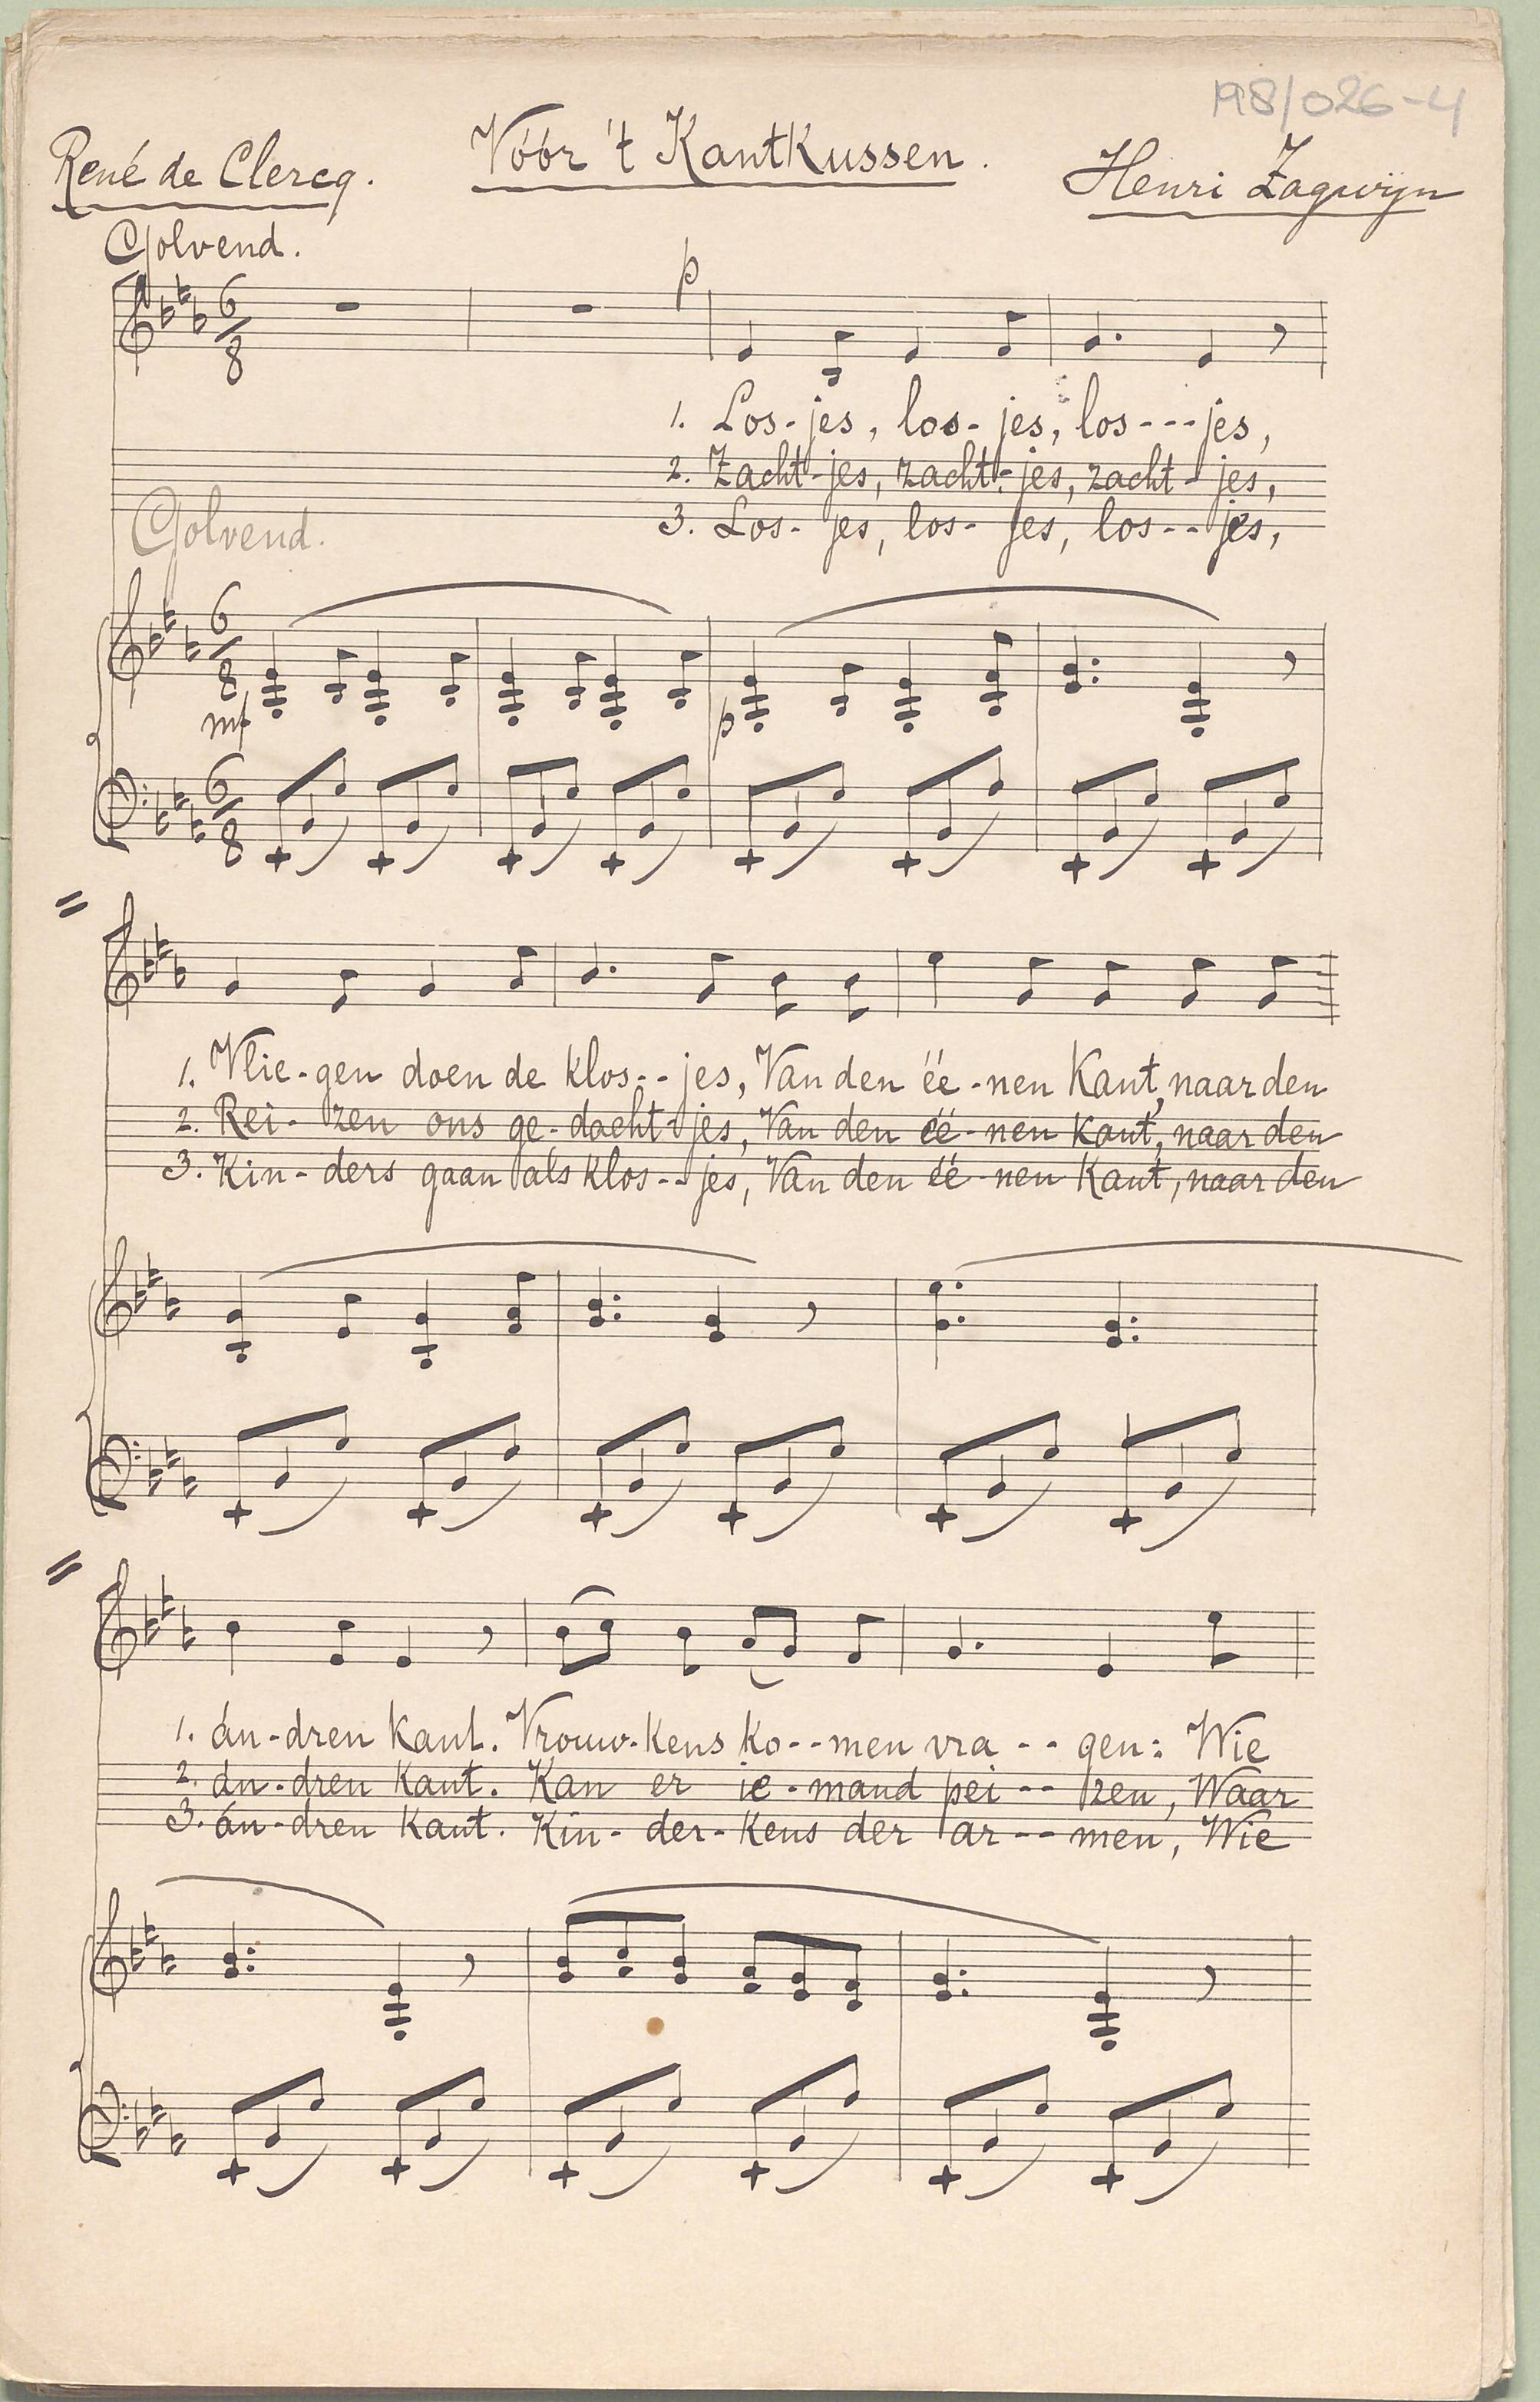 198/026-4
René de Clercq. Vóór 't Kantkussen. Henri Zagwijn
Golvend.
6/8
p
1. Los-jes, los-jes, los---jes,
2. Zacht-jes, zacht-jes, zacht-jes,
3. Los-jes, los-jes, los--jes,
Golvend.
6/8
mf
p
6/8
1. Vlie-gen doen de klos--jes, Van den éé-nen Kant, naar den
2. Rei-zen ons ge-dacht-jes, Van den éé-nen kant, naar den
3. Kin-ders gaan als klos--jes, Van den éé-nen Kant, naar den
1. án-dren kant. Vrouw-kens ko--men vra--gen: Wie
2. án-dren kant. Kan er ie-mand pei--zen, Waar
3. án-dren kant. Kin-der-kens der ar--men, Wie